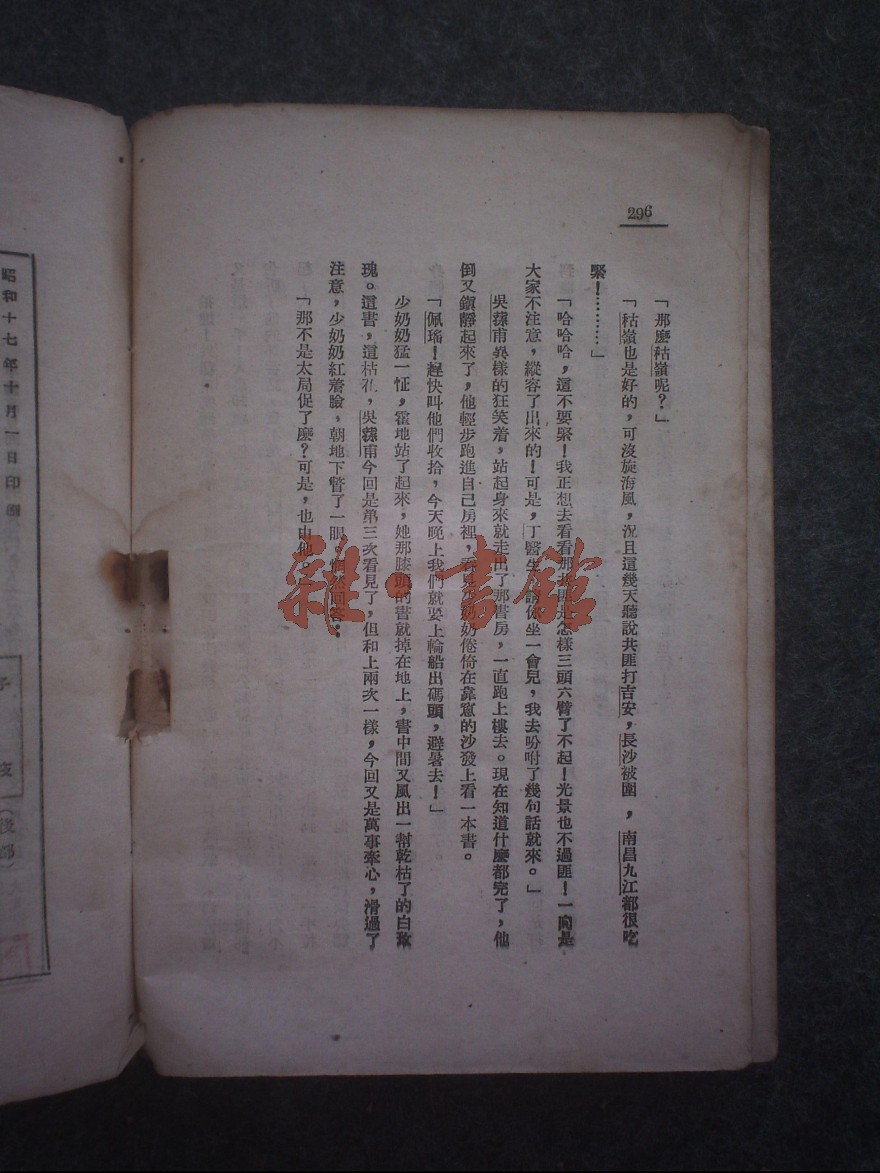 296
「那麽牯嶺呢？」
「牯嶺也是好的，可沒旋海風，況且這幾天聽說共匪打吉安，長沙被圍，南昌九江都很吃
緊！…………」
「哈哈哈，這不要緊！我正想去看看那共匪是怎樣三頭六臂了不起！光景也不過匪！一向是
大家不注意，縱容了出來的！可是，丁醫生，請你坐一會兒，我去吩咐了幾句話就來。」
吳蓀甫異樣的狂笑着，站起身來就走出了那書房，一直跑上樓去。現在知道什麽都完了，他
倒又鎮靜起來了，他輕步跑進自己房裡，看見少奶奶倦倚在靠窻的沙發上看一本書。
「佩瑤！趕快叫他們收拾，今天晚上我們就要上輪船出碼頭，避暑去！」
少奶奶猛一怔，霍地站了起來，她那膝頭的書就掉在地上，書中間又風出一幇乾枯了的白玫
瑰。這書，這枯花，吳蓀甫今回是第三次看見了，但和上兩次一樣，今回又是萬事牽心，滑過了
注意，少奶奶紅着臉，朝地下瞥了一眼。惘然回答：
「那不是太局促了麽？可是，也由他。」
昭和十七年十月一日印
子夜
（後部）
雜·書館